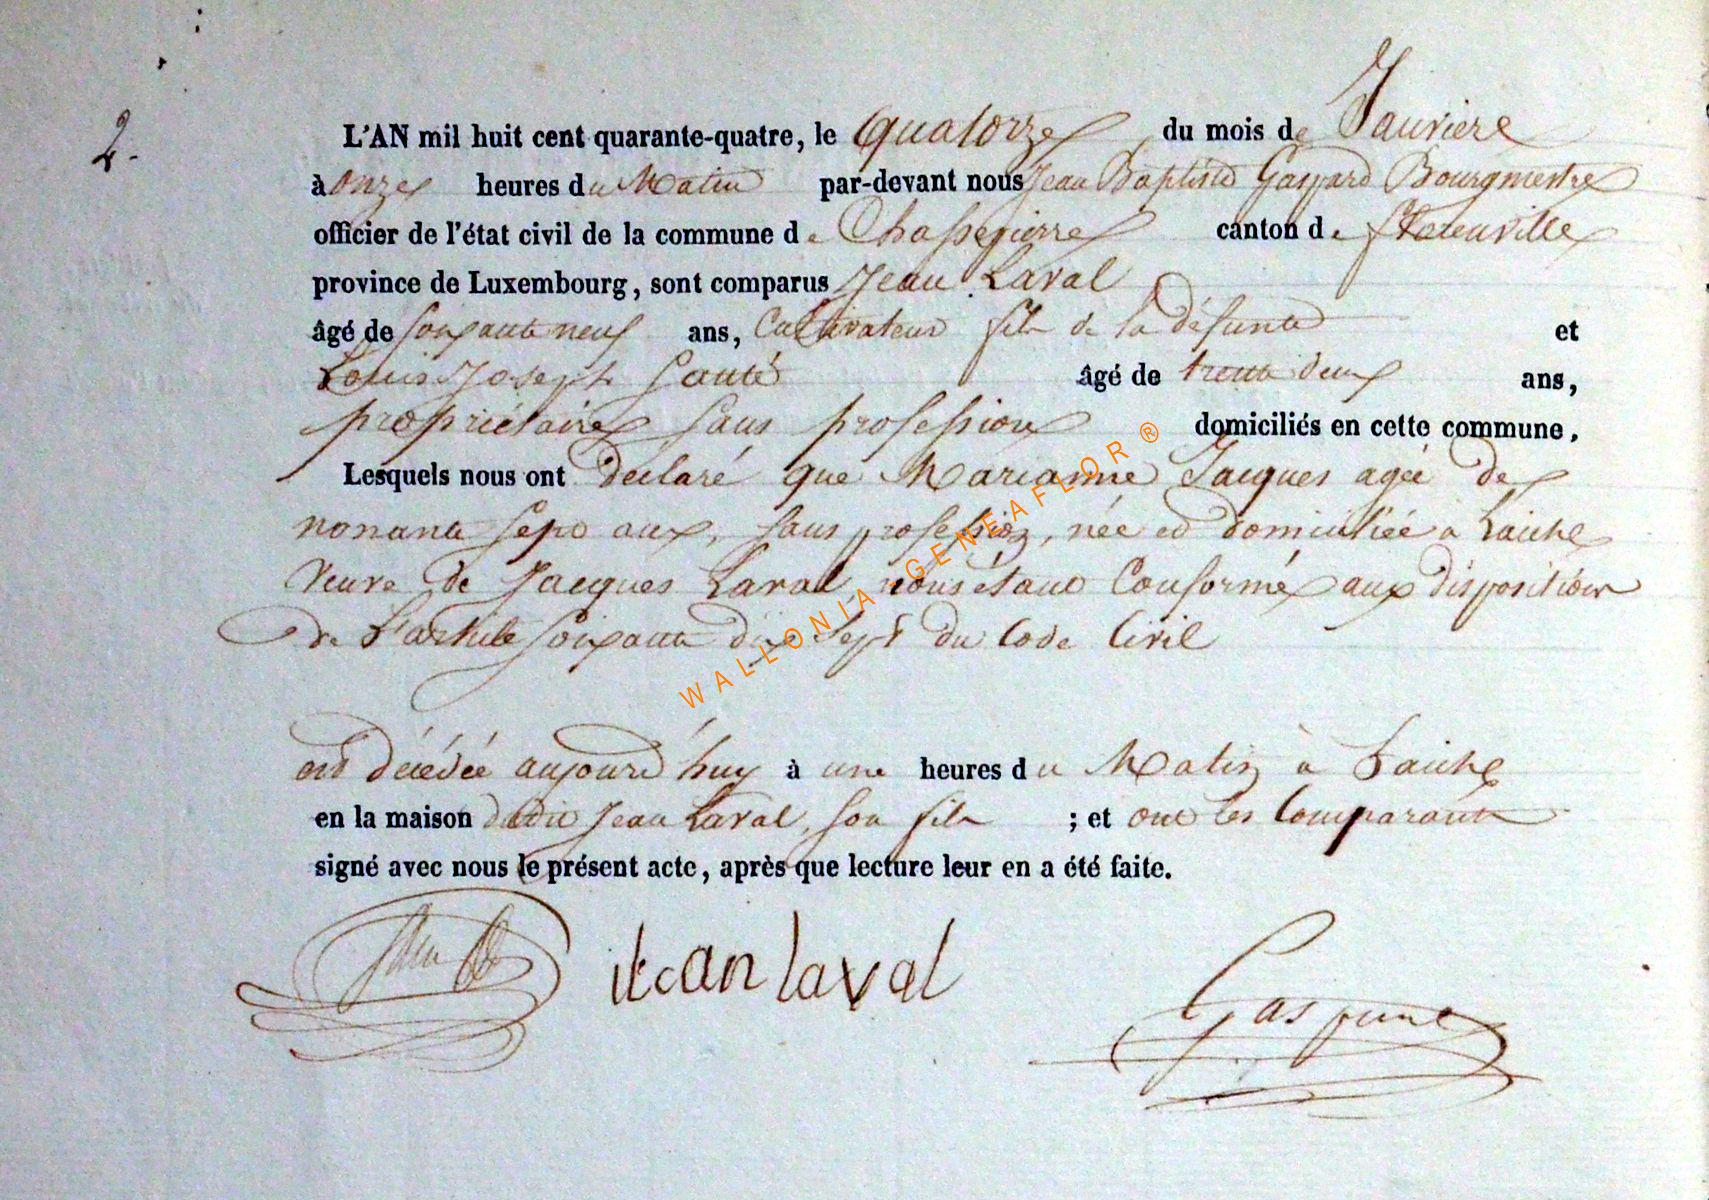 2.
L'AN mil huit cent quarante-quatre, le Quatorze du mois de Janvière
à onze heures du Matin par-devant nous Jean Baptiste Gaspard Bourgmestre
officier de l'état civil de la commune de Chassepierre canton de florenville
province de Luxembourg, sont comparus Jean Laval
âgé de soixante neuf ans, Cultivateur fils de la défunte et
Louis Joseph Santé âgé de trente deux ans,
propriétaire sans profession domiciliés en cette commune.
Lesquels nous ont déclaré que Marianne Jacques agée de
nonante sept ans, sans profession, née et domiciliée a Laiche
Veuve de Jacques Laval, nous étant Conformé aux disposition
de L'article soixante dix sept du Code Civil
est décédée aujourd'huy à une heures du Matin a Laiche
en la maison dudit Jean Laval, son fils ; et ont les Comparants
signé avec nous le présent acte, après que lecture leur en a été faite.
jean laval
WALLONIA-GENEAFLOR ®